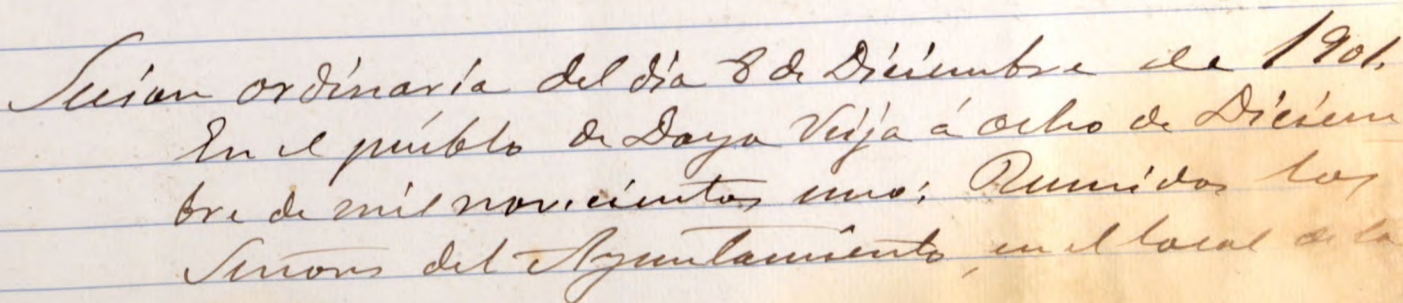 Sesion ordinaria del dia 8 de Diciembre de 1901.
En el pueblo de Daya Vieja á ocho de Diciem
bre de mil novecientos uno; Reunidos los
Señores del Ayuntamiento, en el local de la